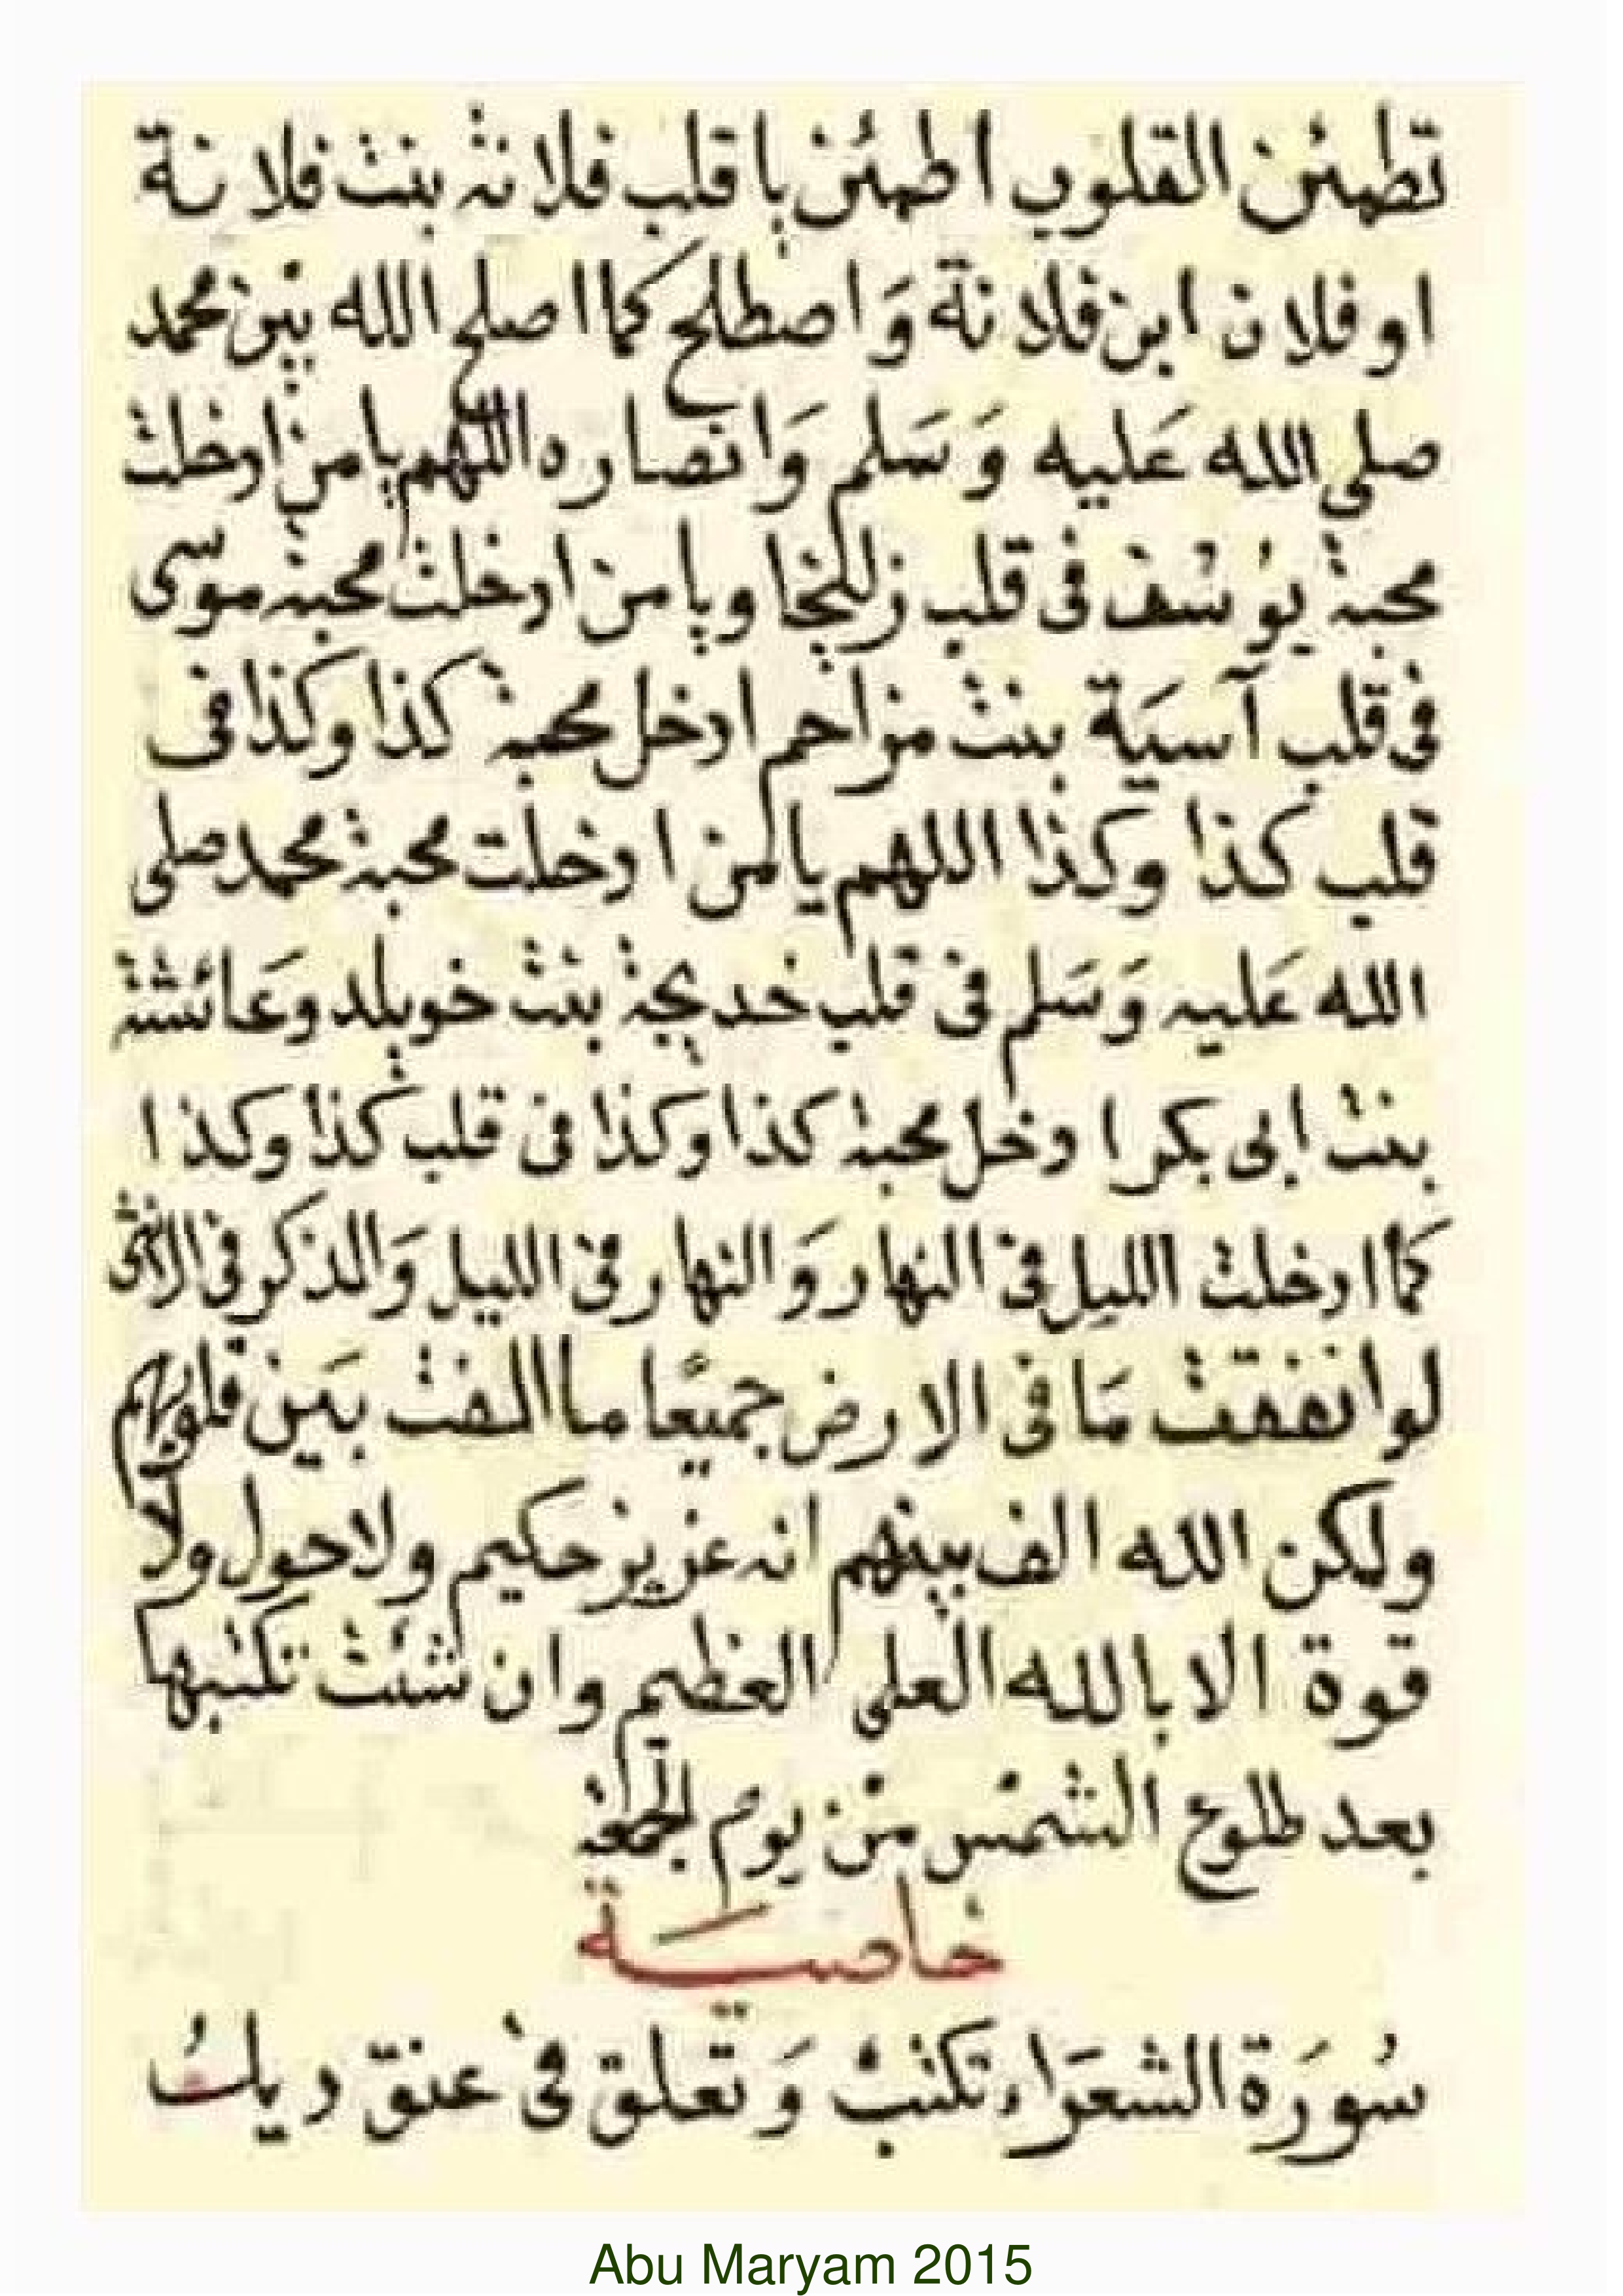 تطمئن القلوب اطمئن يا قلب فلانة بنت فلانة
او فلان ابن فلانة وَاصطلح كما اصلح الله بين محمد
صلى الله عَليه وَسَلم وَانصاره اللهم يا من ادخلت
محبة يوسُف فى قلب زليخا ويا من ادخلت محبة موسى
فى قلب آسيَة بنت مزاحم ادخل محبة كذا وكذا فى
قلب كذا وكذا اللهم يا من ادخلت محبة محمد صلى
الله عَليه وَسَلم فى قلب خديجة بنت خويلد وعَائشة
بنت ابى بكر ادخل محبة كذا وكذا فى قلب كذا وكذا
كما ادخلت الليل فى النهار وَالنهار فى الليل وَالذكر فى الانثى
لو انفقت مَا فى الارض جميعًا ما الفت بَين قلوبهم
ولكن الله الف بينهم انه عزيز حكيم ولا حول ولا
قوة الا بالله العلى العظيم وان شئت تكتبها
بعد طلوع الشمس من يوم الجمعة
خاصيَة
سُورَة الشعرَاء تكتب وَتعلق فى عنق ديك
Abu Maryam 2015